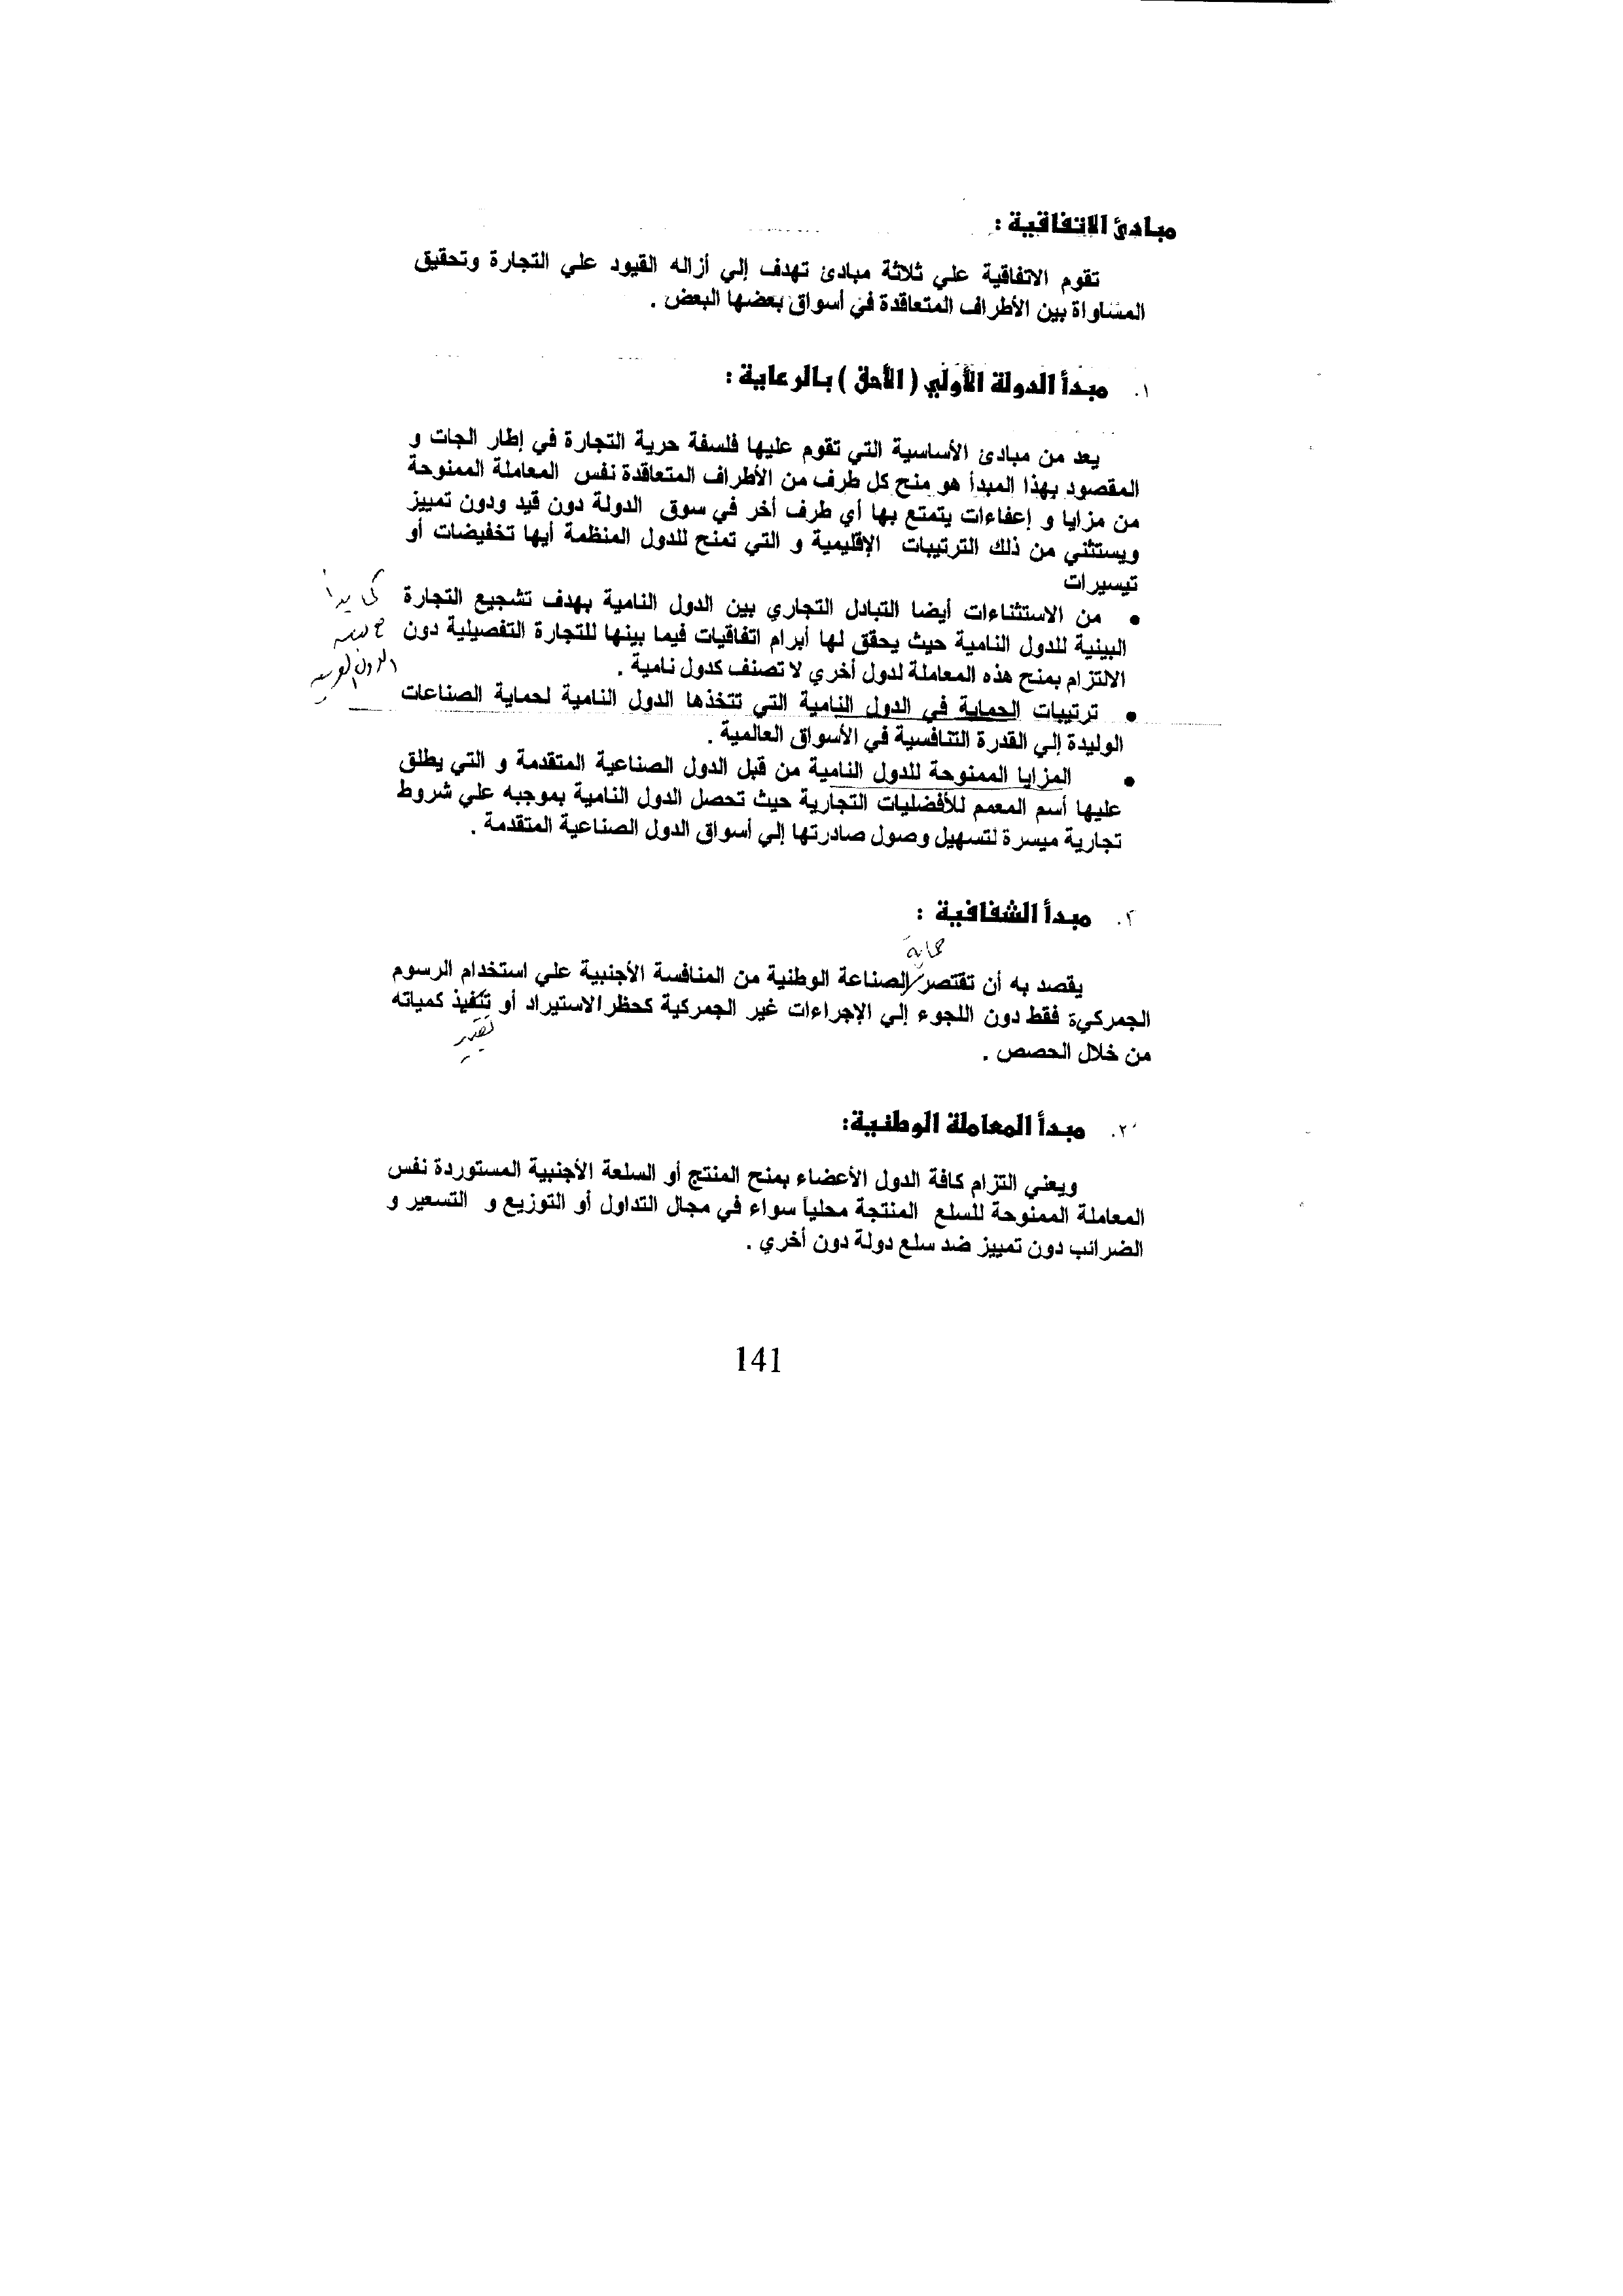 مبادئ الاتفاقية :
تقوم الاتفاقية علي ثلاثة مبادئ تهدف إلي أزاله القيود علي التجارة وتحقيق
المساواة بين الأطراف المتعاقدة في أسواق بعضها البعض .
١. مبدأ الدولة الأولي ( الأحق ) بالرعاية :
يعد من مبادئ الأساسية التي تقوم عليها فلسفة حرية التجارة في إطار الجات و
المقصود بهذا المبدأ هو منح كل طرف من الأطراف المتعاقدة نفس المعاملة الممنوحة
من مزايا و إعفاءات يتمتع بها أي طرف أخر في سوق الدولة دون قيد ودون تمييز
ويستثني من ذلك الترتيبات الإقليمية و التي تمنح للدول المنظمة أيها تخفيضات أو
تيسيرات
• من الاستثناءات أيضا التبادل التجاري بين الدول النامية بهدف تشجيع التجارة
البينية للدول النامية حيث يحقق لها أبرام اتفاقيات فيما بينها للتجارة التفصيلية دون
الالتزام بمنح هذه المعاملة لدول أخري لا تصنف كدول نامية .
• ترتيبات الحماية في الدول النامية التي تتخذها الدول النامية لحماية الصناعات
الوليدة إلي القدرة التنافسية في الأسواق العالمية .
• المزايا الممنوحة للدول النامية من قبل الدول الصناعية المتقدمة و التي يطلق
عليها أسم المعمم للأفضليات التجارية حيث تحصل الدول النامية بموجبه علي شروط
تجارية ميسرة لتسهيل وصول صادرتها إلي أسواق الدول الصناعية المتقدمة .
٢. مبدأ الشفافية :
حماية
يقصد به أن تقتصر الصناعة الوطنية من المنافسة الأجنبية علي استخدام الرسوم
الجمركية فقط دون اللجوء إلي الإجراءات غير الجمركية كحظر الاستيراد أو تنفيذ كمياته
من خلال الحصص .
٢. مبدأ المعاملة الوطنية:
ويعني التزام كافة الدول الأعضاء بمنح المنتج أو السلعة الأجنبية المستوردة نفس
المعاملة الممنوحة للسلع المنتجة محلياً سواء في مجال التداول أو التوزيع و التسعير و
الضرائب دون تمييز ضد سلع دولة دون أخري .
141